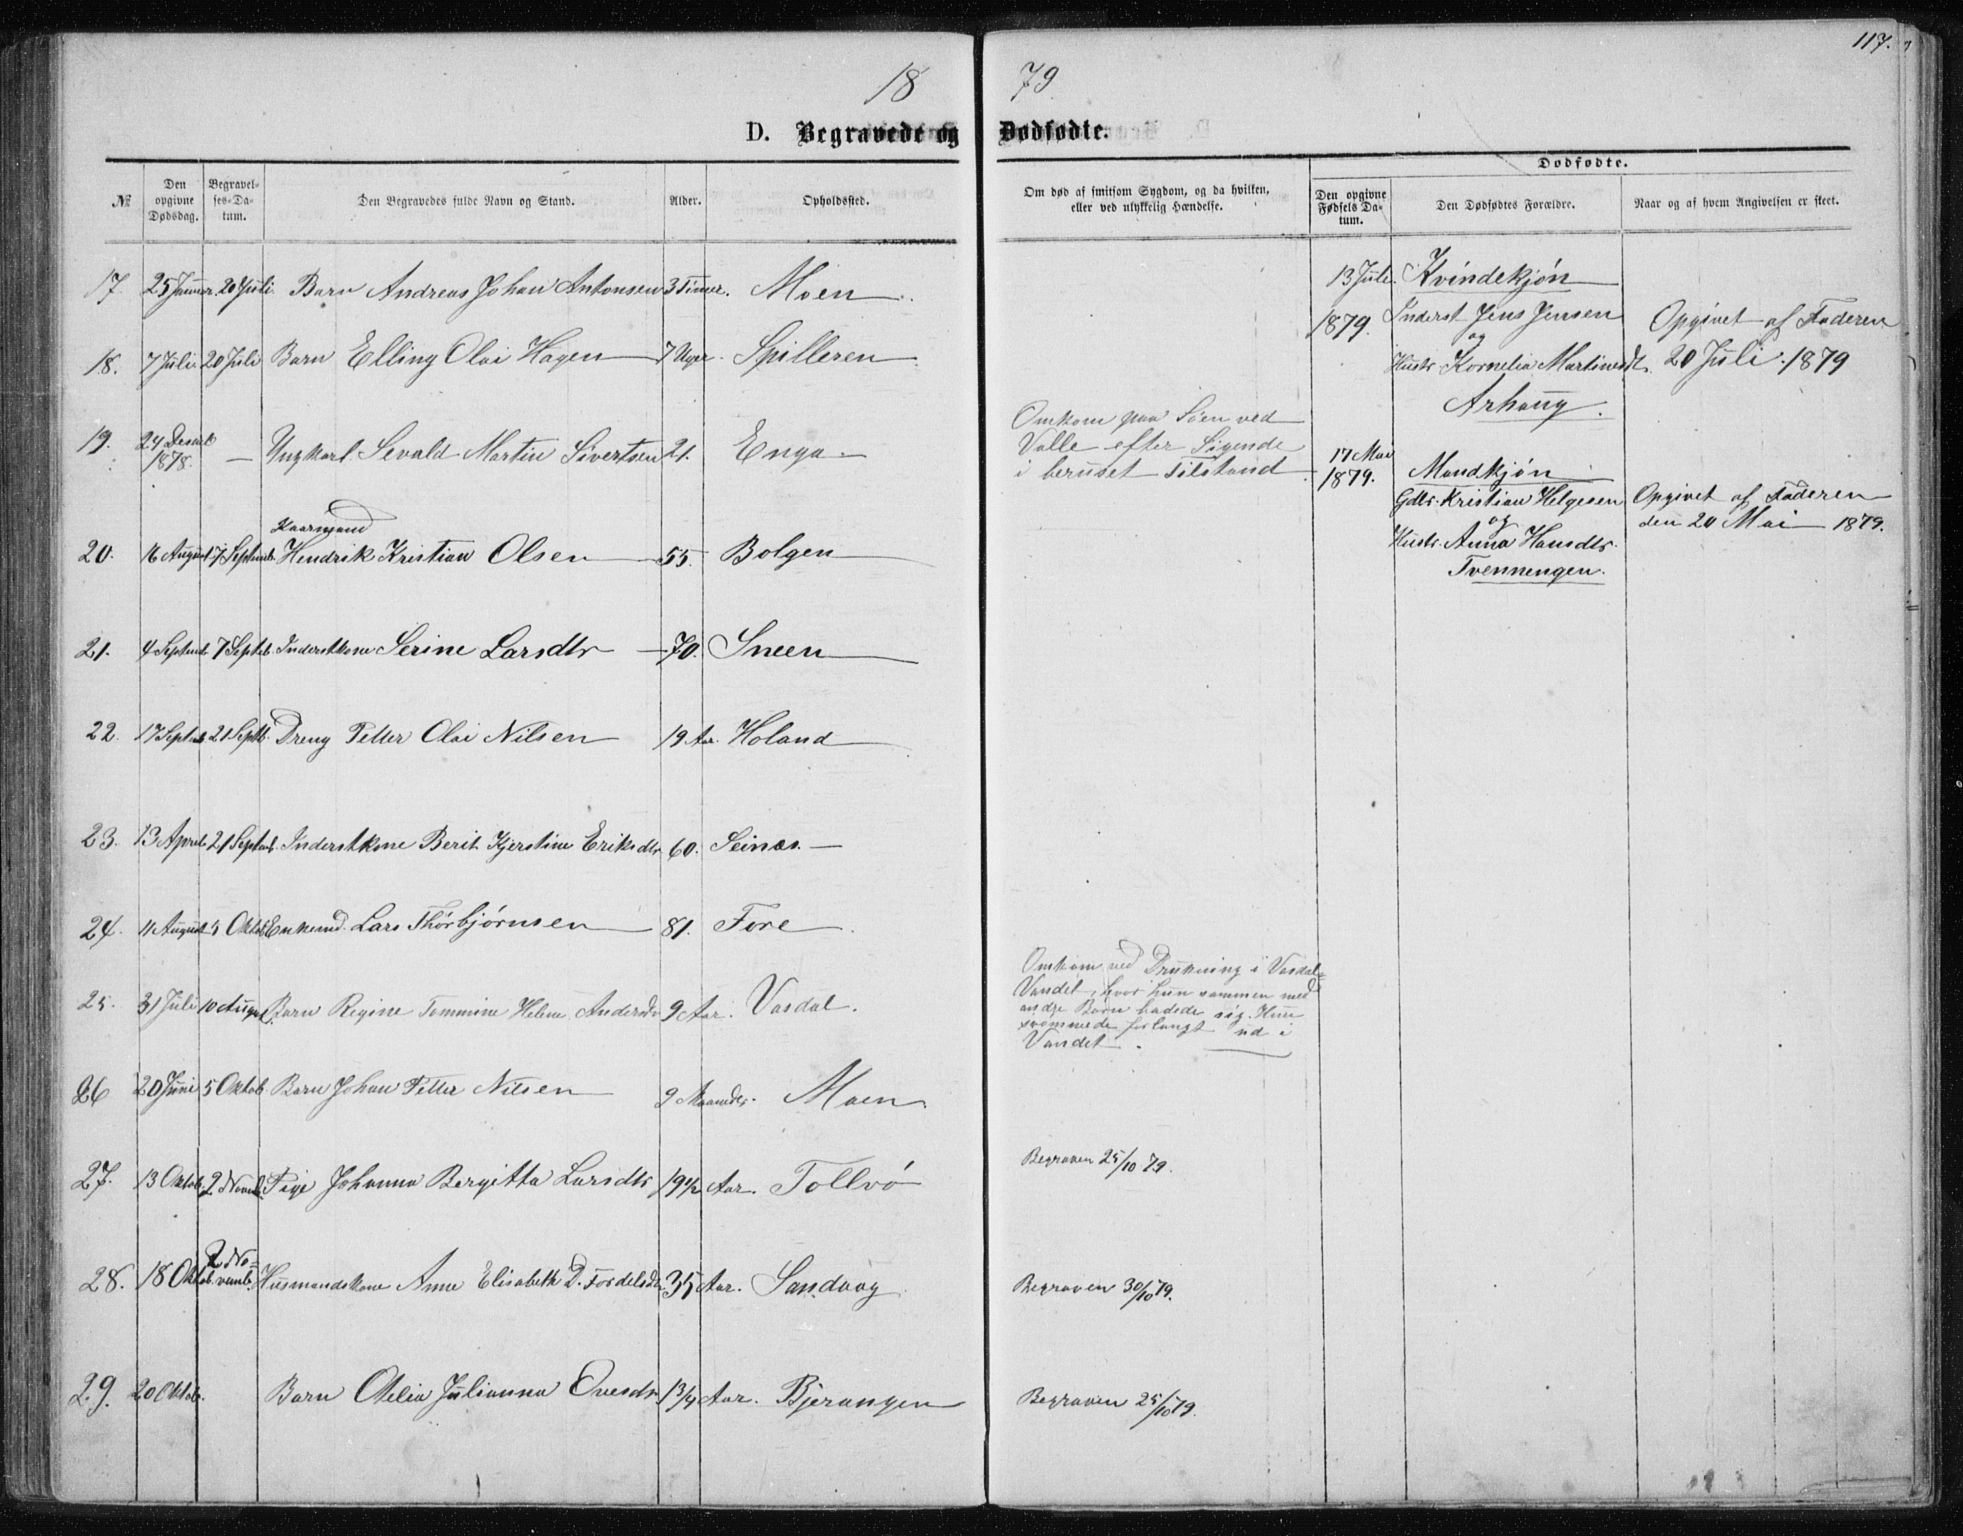 117.
18 79
D. Begravede og Dødfødte.
№
Den opgivne Dødsdag.
Begravelses-Datum.
Den Begravedes fulde Navn og Stand.
Alder.
Opholdssted.
Om død af smitsom Sygdom, og da hvilken, eller ved ulykkelig Hændelse.
Dødfødte.
Den opgivne Fødsels Datum.
Den Dødfødtes Forældre.
Naar og af hvem Angivelsen er skeet.
17. 25 20 Juli Barn Andreas Johan Antonsen 3 Timer. Moen
18. 7 Juli 20 Juli Barn Elling Olai Hagen 7 Uger. Spilleren
19. 24 Decmb 1878. — Ungkarl. Sevald Martin Sivertsen 21. Enga
Omkom paa Søen ved
Valle efter Sigende
i beruset Tilstand
Kaarmand
20. 16 August 7 Septemb. Hendrik Kristian Olsen 55. Bolgen
21. 4 Septemb 7 Septb. Inderstkone Serine Larsdtr 70. Sneen
22. 17 Septemb 21 Septb. Dreng Petter Olai Nilsen 19 Aar. Holand
23. 13 April 21 Septemb. Inderstkone Berit Kjerstine Eriksdtr 60. Seinæs.
24. 11 August 5 Oktob Enkemd. Lars Thorbjørnsen 81. Fore
25. 31 Juli 10 August. Barn Regine Tommine Helene Andersdtr 9 Aar. Vasdal.
Omkom ved Drukning i Vasdal-
Vandet, hvor hun sammen med
andre Børn badede sig. Hun
svømmede forlangt ud i
Vandet.
26 20 Juni 5 Oktob. Barn Johan Petter Nilsen 9 Maaneder. Moen.
27. 13 Oktob. 2 Novemb. Pige Johanna Bergitta Larsdtr 19½ Aar. Tollvø
Begraven 25/10 79.
28. 18 Oktob. 2 November Husmandskone Anne Elisabeth D. Tordelsdtr 35 Aar. Sandvag
Begraven 30/10 79.
29. 20 Oktob. Barn Otelia Julianna Ovesdtr 1 3/4 Aar. Bjerangen
Begraven 25/10 79.
13 Juli 1879. Kvindekjøn
Inderst Jens Jensen
og
Hustr. Kornelia Martinsdt.
Arhaug.
Opgivet af Faderen
20 Juli 1879
17 Mai 1879. Mandkjøn
Gdbr. Kristian Helgesen
og
Hustr. Anna Hansdtr.
Tvennengen.
Opgivet af Faderen
den 20 Mai 1879.